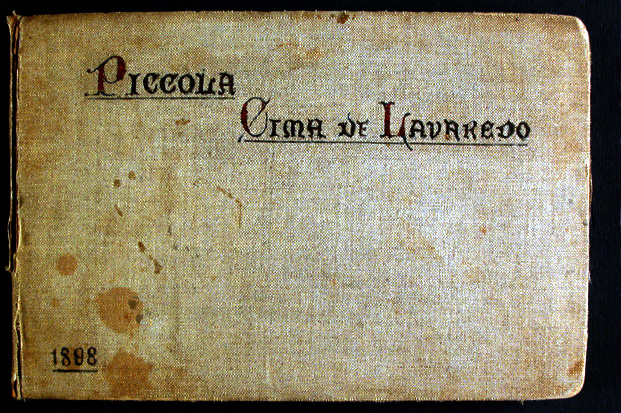 Piccola
Cima de Lavaredo
1898